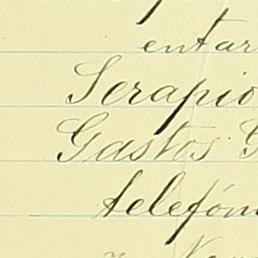 entar
Serapio
Gastos G
telefón